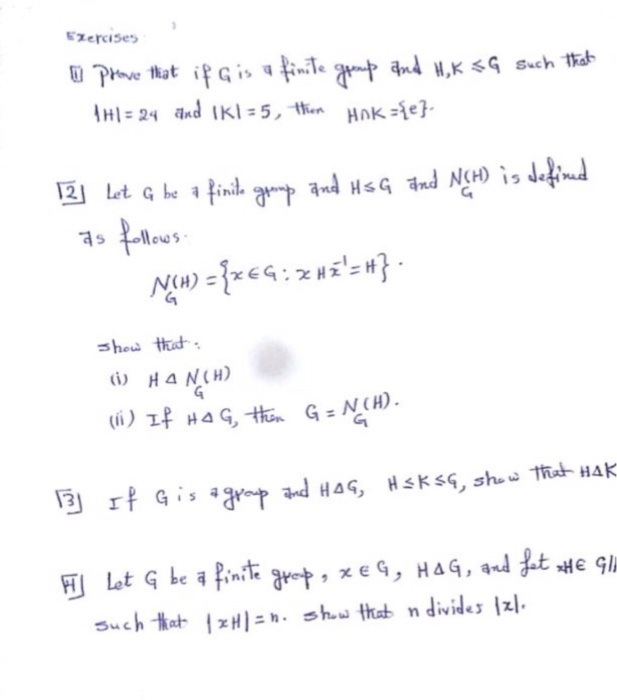 Exercises
[1] Prove that if G is a finite group and H,K ≤ G such that
|H| = 24 and |K| = 5, then H∩K = {e}.
[2] Let G be a finite group and H ≤ G and N_G(H) is defined
as follows.
N_G(H) = {x ∈ G : x H x⁻¹ = H}.
show that:
(i) H Δ N_G(H)
(ii) If H Δ G, then G = N_G(H).
[3] If G is a group and H Δ G, H ≤ K ≤ G, show that H Δ K
[4] Let G be a finite group, x ∈ G, H Δ G, and let xH ∈ G/
such that |xH| = n. show that n divides |x|.